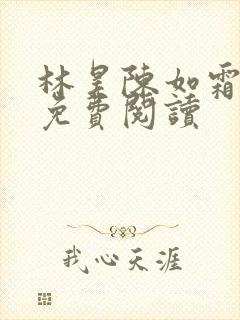 林昊陳如霜
免費閱讀
我心天涯